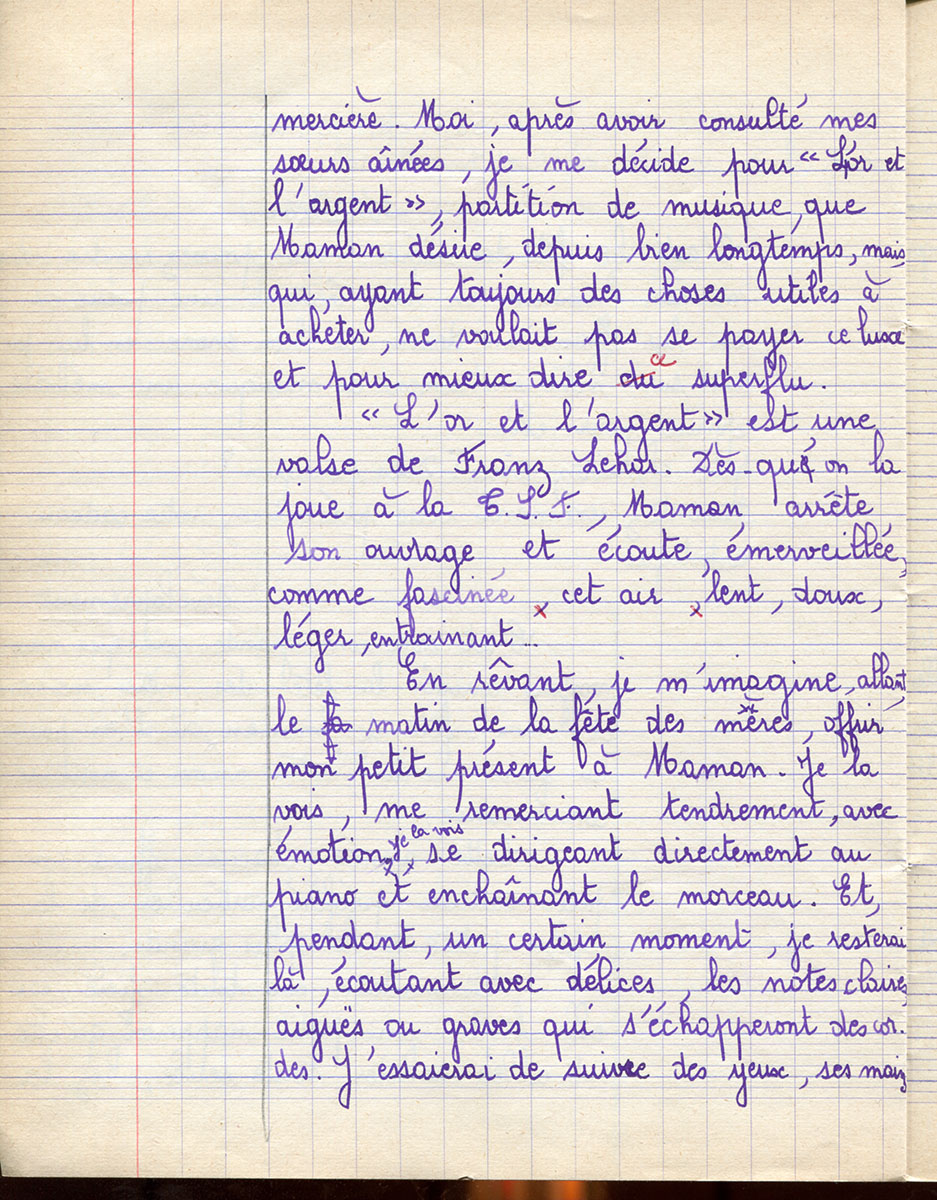 mercière. Moi, après avoir consulté mes
sœurs aînées, je me décide pour « L'or et
l'argent », partition de musique, que
Maman désire, depuis bien longtemps, mais
qui, ayant toujours des choses utiles à
acheter, ne voulait pas se payer ce luxe
et pour mieux dire du ce superflu.
« L'or et l'argent » est une
valse de Franz Lehar. Dès-que on la
joue à la T.S.F., Maman arrête
son ouvrage et écoute, émerveillée,
comme fascinée, cet air, lent, doux,
léger, entrainant...
En rêvant, je m'imagine, allant,
le fa matin de la fête des mères, offrir
mon petit présent à Maman. Je la
vois, me remerciant tendrement, avec
émotion, je la vois se dirigeant directement au
piano et enchaînant le morceau. Et,
pendant, un certain moment, je resterai
là, écoutant avec délices, les notes claires,
aiguës ou graves qui s'échapperont des cor-
des. J'essaierai de suivre des yeux, ses mains